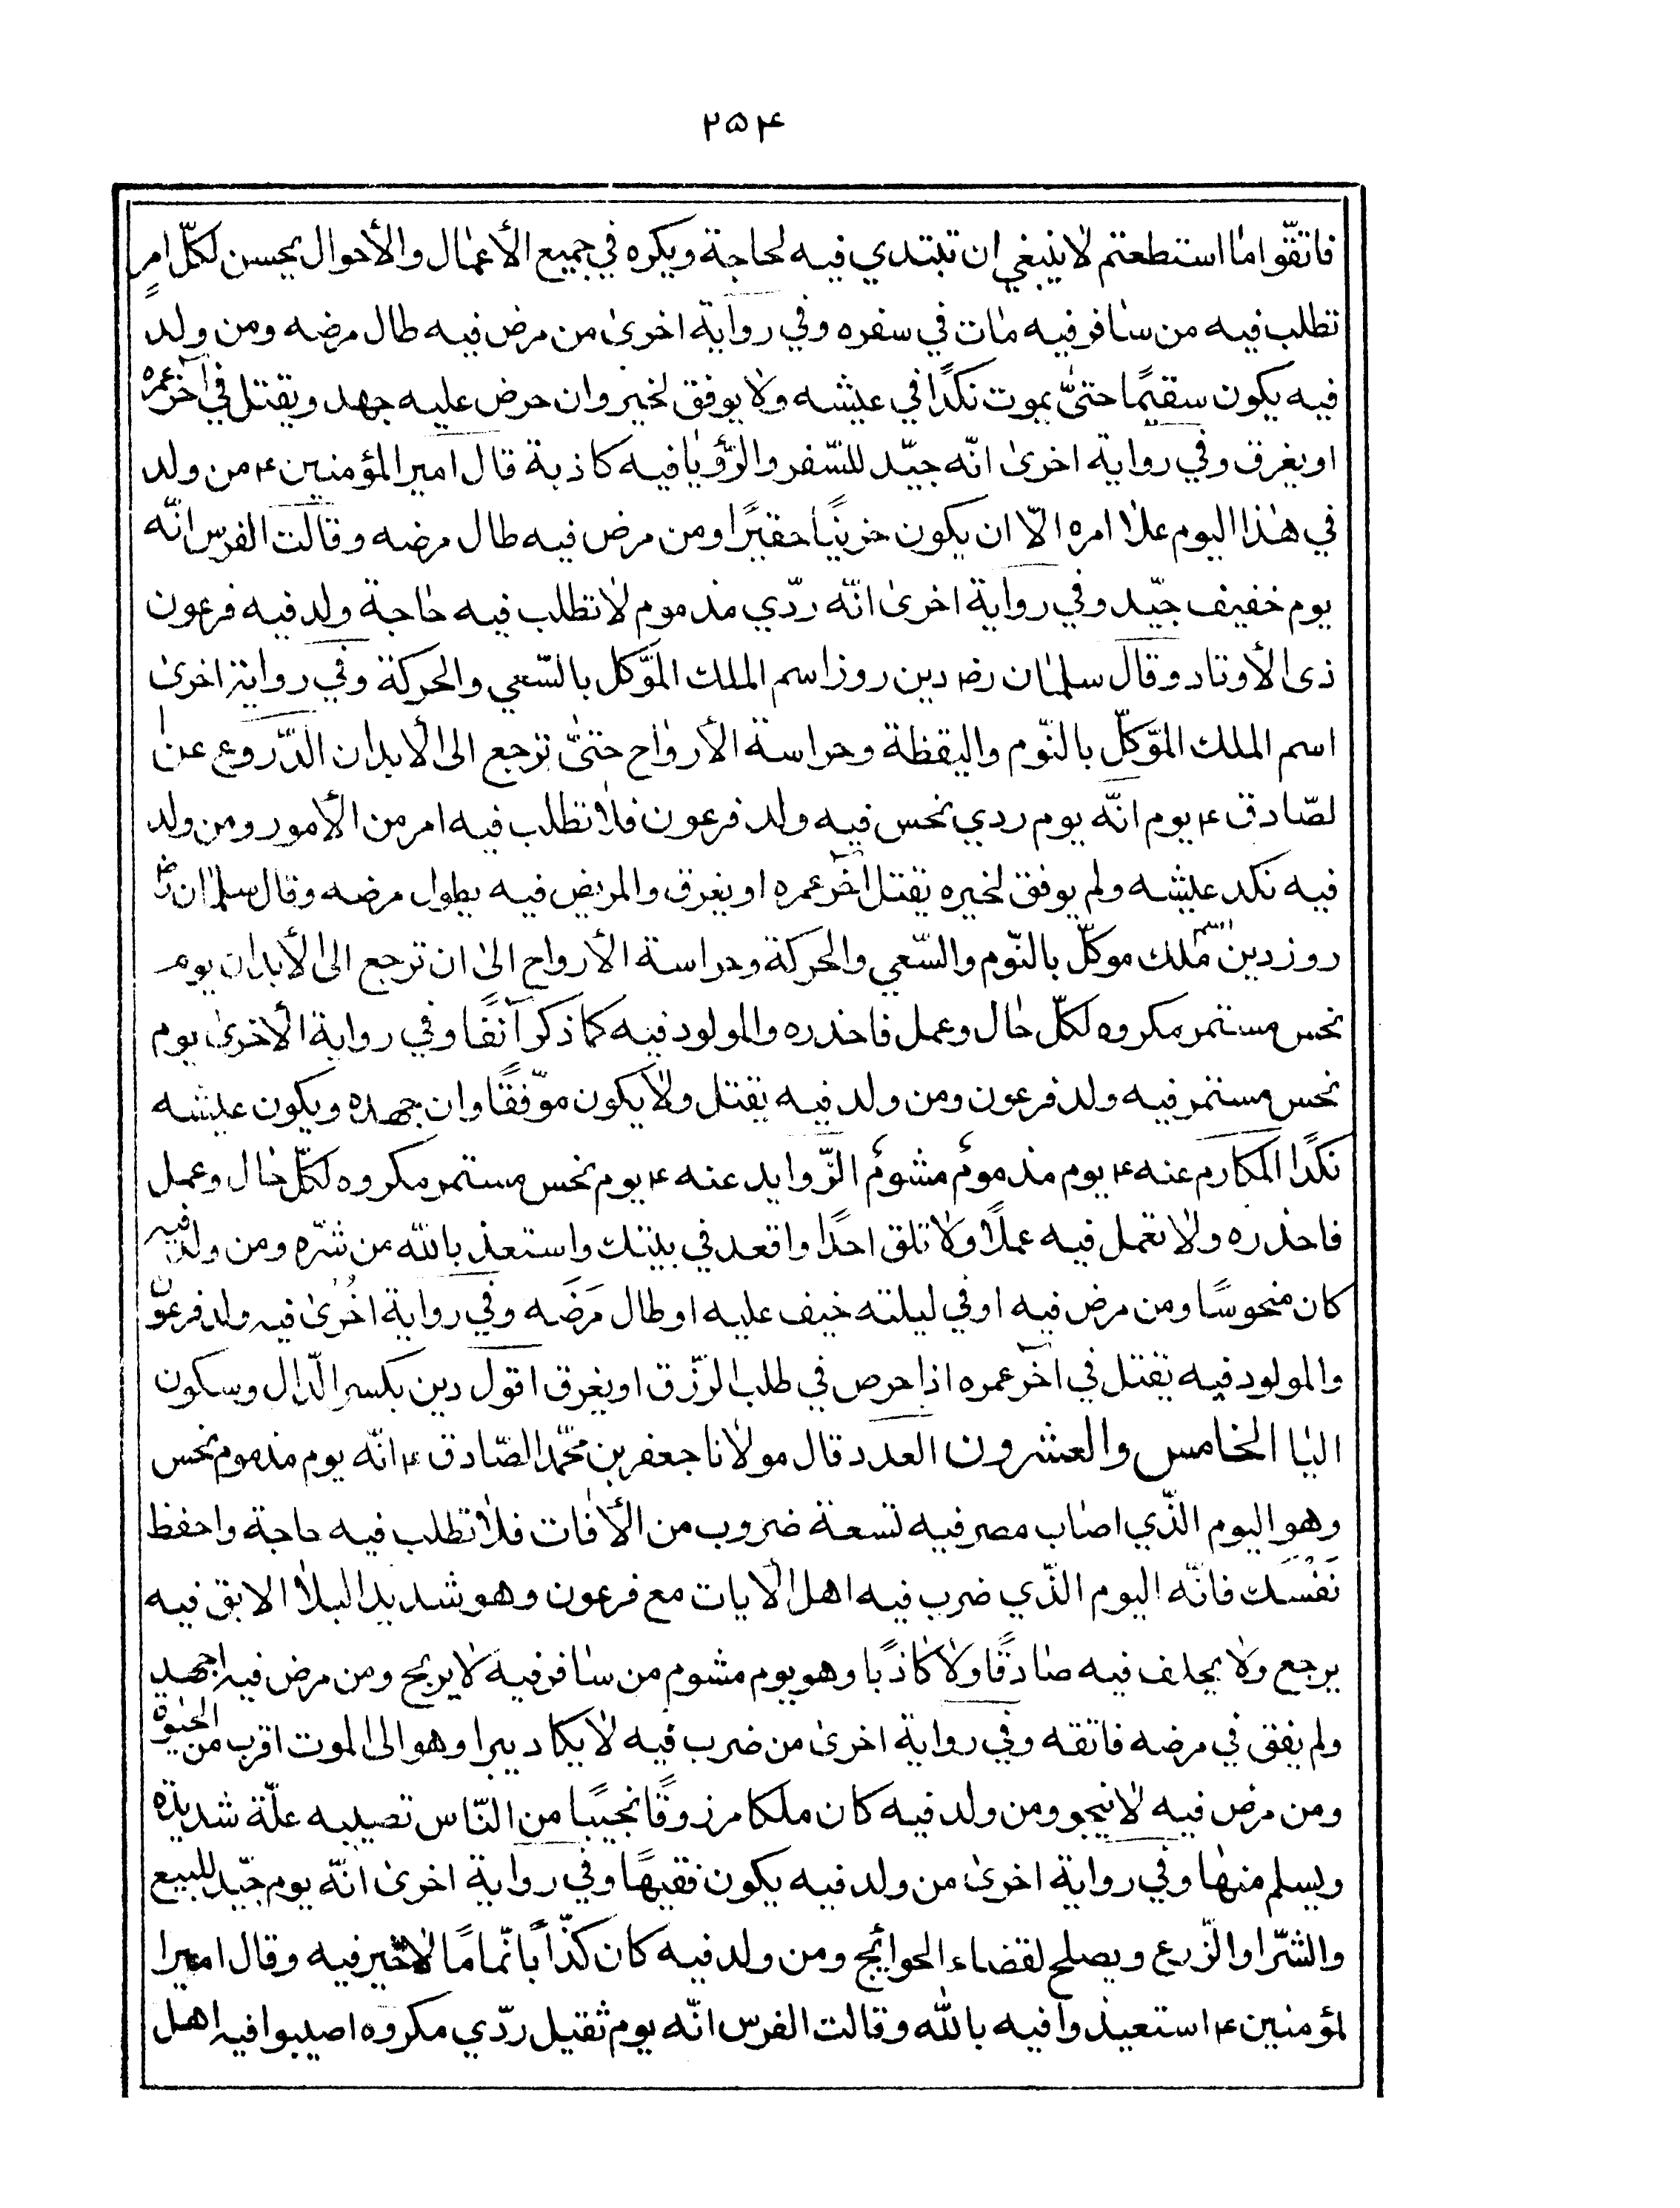 ۲۵۴
فاتقّوا مٰا استطعتم لاٰ ينبغي ان تبتدي فيه لحاجة ويكره في جميع الأعمٰال والأحوال يحسن لكلّ امرٍ
تطلب فيه من سٰافر فيه مٰات في سفره وفي رواية اخرىٰ من مرض فيه طال مرضه ومن ولد
فيه يكون سقيمًا حتىّٰ يموت نكدًا في عيشه ولاٰ يوفق لخير وان حرض عليه جهد ويقتل في آخر عمره
او يغرق وفي رواية اخرىٰ انّه جيّد للسّفر والرّؤيٰا فيه كاذبة قال امير المؤمنين ۴ من ولد
في هٰذا اليوم علاٰ امره الاّ ان يكون حزينًا حقيرًا ومن مرض فيه طال مرضه وقالت الفرس انّه
يوم خفيف جيّد وفي رواية اخرىٰ انّه ردّي مذموم لاٰ تطلب فيه حٰاجة ولد فيه فرعون
ذى الأوتاد وقال سلمٰان رض دين روز اسم الملك المّوكل بالسّعي والحركة وفي رواية اخرىٰ
اسم الملك المّوكلّ بالنّوم واليقظة وحراسة الأروٰاح حتىّٰ ترجع الى الابدان الدّروع عن
لصّادق ۴ يوم انّه يوم ردي نحس فيه ولد فرعون فلاٰ تطلب فيه امر من الأمور ومن ولد
فيه نكد عيشه ولم يوفق لخيره يقتل آخر عمره او يغرق والمريض فيه يطول مرضه وقال سلمٰان رض
روز دين اسم ملك موكلّ بالنّوم والسّعي والحركة وحراسة الأرواح الىٰ ان ترجع الى الأبدان يوم
نحس مستمر مكروه لكلّ حٰال وعمل فاحذره والمولود فيه كما ذكر آنفًا وفي رواية الاخرىٰ يوم
نحس مستمر فيه ولد فرعون ومن ولد فيه يقتل ولاٰ يكون موّفقًا وان جهده ويكون عيشه
نكدًا المكارم عنه ۴ يوم مذموم مشوم الزّوايد عنه ۴ يوم نحس مستمر مكروه لكلّ حٰال وعمل
فاحذره ولاٰ تعمل فيه عملاً ولاٰ تلق احدًا واقعد في بيتك واستعذ بالله من شرّه ومن ولد فيه
كان منحوسًا ومن مرض فيه او في ليلته خيف عليه او طال مَرَضَه وفي رواية اخُرىٰ فيه ولد فرعون
والمولود فيه يقتل في آخر عمره اذا حرص في طلب الرّزق او يغرق اقول دين بكسر الدّال وسكون
اليٰا الخامس والعشرون العدد قال مولاٰنا جعفر بن محمّد الصّادق ۴ انّه يوم مذموم نحس
وهو اليوم الذّي اصٰاب مصر فيه تسعة ضروب من الأفٰات فلاٰ تطلب فيه حاجة واحفظ
نَفْسَك فانّه اليوم الذّي ضرب فيه اهل الاٰيات مع فرعون وهو شديد البلاٰ الابق فيه
يرجع ولاٰ يحلف فيه صٰادقًا ولاٰ كٰاذبًا وهو يوم مشوم من سٰافر فيه لاٰ يربح ومن مرض فيه اجهد
ولم يفق في مرضه فاتقه وفي رواية اخرىٰ من ضرب فيه لاٰ يكاد يبرا وهو الى الموت اقرب من الحيٰوة
ومن مرض فيه لاٰ ينجو ومن ولد فيه كان ملكا مرزوقًا نجيبًا من النّاس تصيبه علّة شديدة
ويسلم منهٰا وفي رواية اخرىٰ من ولد فيه يكون فقيهًا وفي رواية اخرىٰ انّه يوم جيّد للبيع
والشّرا والزّرع ويصلح لقضاء الحوائج ومن ولد فيه كان كذّابًا نمّامًا لاٰ خير فيه وقال اميرا
لمؤمنين ۴ استعيذوا فيه بالله وقالت الفرس انّه يوم ثقيل ردّي مكروه اصيبوا فيه اهل